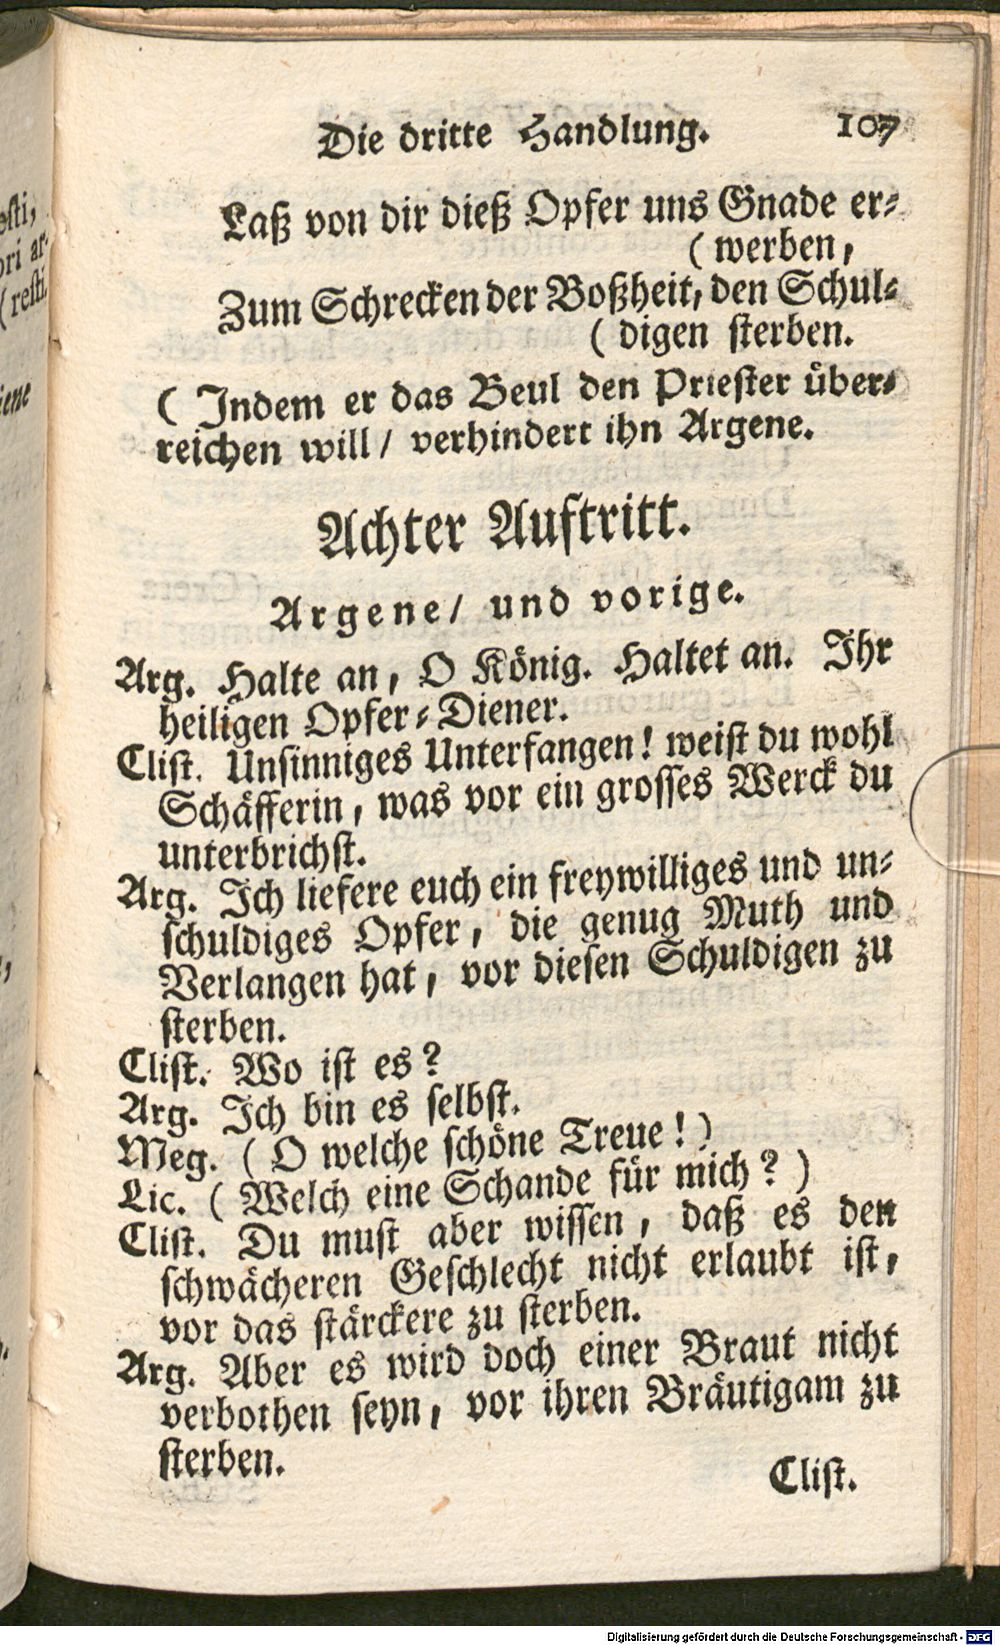 eſti,
ori ar-
(reſti.
iene
Die dritte Handlung. 107
Laß von dir dieß Opfer uns Gnade er⸗
( werben,
Zum Schrecken der Boßheit, den Schul⸗
( digen ſterben.
( Indem er das Beul den Prieſter über⸗
reichen will / verhindert ihn Argene.
Achter Auftritt.
Argene/ und vorige.
Arg. Halte an, O König. Haltet an. Ihr
heiligen Opfer⸗Diener.
Cliſt. Unſinniges Unterfangen! weiſt du wohl
Schäfferin, was vor ein groſſes Werck du
unterbrichſt.
Arg. Ich liefere euch ein freywilliges und un⸗
ſchuldiges Opfer, die genug Muth und
Verlangen hat, vor dieſen Schuldigen zu
ſterben.
Cliſt. Wo iſt es?
Arg. Ich bin es ſelbſt.
Meg. ( O welche ſchöne Treue! )
Lic. ( Welch eine Schande für mich? )
Cliſt. Du muſt aber wiſſen, daß es den
ſchwächeren Geſchlecht nicht erlaubt iſt,
vor das ſtärckere zu ſterben.
Arg. Aber es wird doch einer Braut nicht
verbothen ſeyn, vor ihren Bräutigam zu
ſterben.
Cliſt.
Digitalisierung gefördert durch die Deutsche Forschungsgemeinschaft - DFG